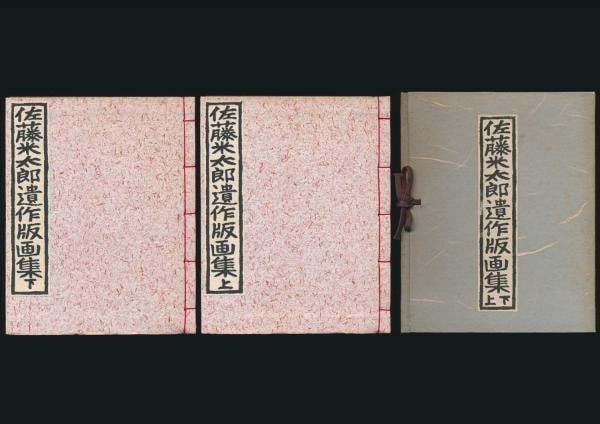 佐藤米太郎遺作版画集下
佐藤米太郎遺作版画集上
佐藤米太郎遺作版画集上下